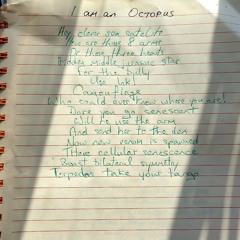 I am an Octopus
Hey clever son satellite
You are those 8 arms
Or these three hearts
middle jurassic star
For the billy
Use Ink!
Camouflage
Who could ever know where you are!
Dare you go senescent
Will he use the arm
And send her to the den
Now new venom is spawned
There cellular senescence
Boast bilateral symmetry
Torpedos take your